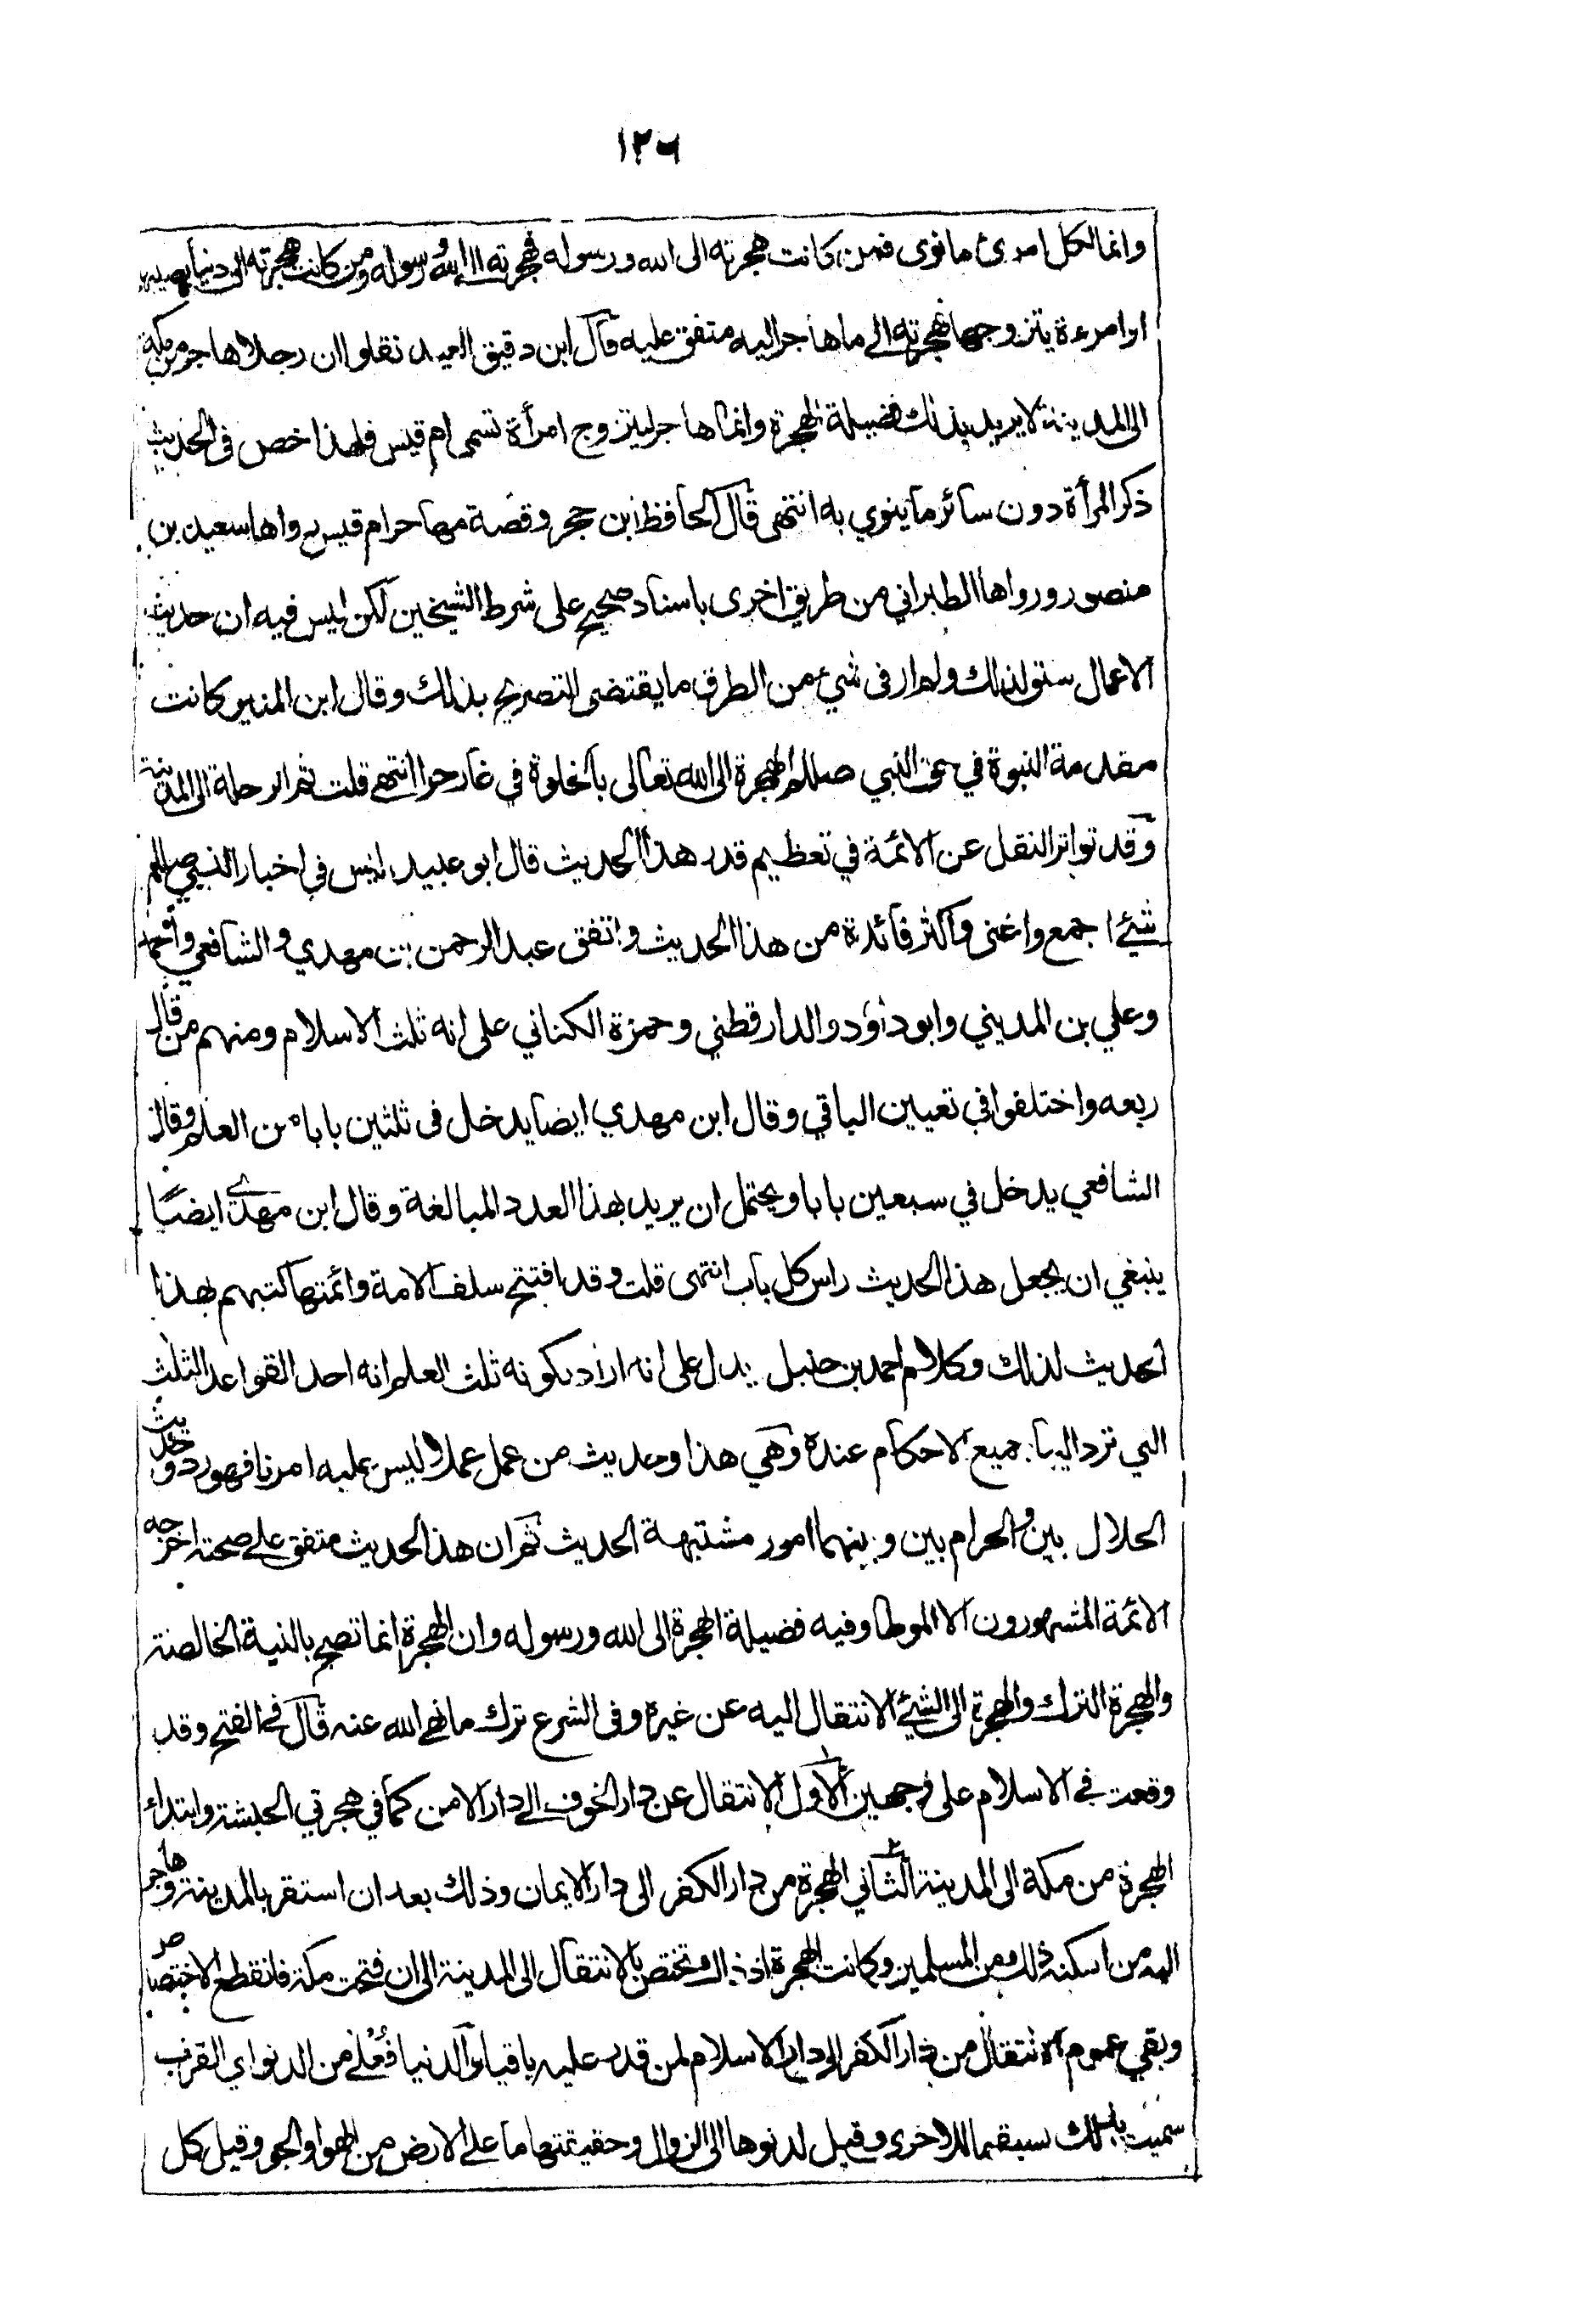 ١٢٦
وانما لكل امرئ ما نوى فمن كانت هجرته الى الله ورسوله فهجرته الى الله ورسوله ومن كانت هجرته الى دنيا يصيبها
او امرءة يتزوجها فهجرته الى ما هاجر اليه متفق عليه قال ابن دقيق العيد نقلوا ان رجلا هاجر من مكة
الى المدينة لا يريد بذلك فضيلة الهجرة وانما هاجر ليتزوج امرأة تسمى ام قيس فلهذا خص فى الحديث
ذكر المرأة دون سائر ما ينوي به انتهى قال الحافظ ابن حجر وقصة مهاجر ام قيس رواها سعيد بن
منصور ورواها الطبراني من طريق اخرى باسناد صحيح على شرط الشيخين لكن ليس فيه ان حديث
الاعمال سيق لذلك ولم ار فى شيء من الطرق ما يقتضى التصريح بذلك وقال ابن المنير كانت
مقدمة النبوة في حق النبي صللم الهجرة الى الله تعالى بالخلوة في غار حرا انتهى قلت ثم الرحلة الى المدينة
وقد تواتر النقل عن الائمة في تعظيم قدر هذا الحديث قال ابو عبيد ليس في اخبار النبي صللم
شيئ اجمع واغنى واكثر فائدة من هذا الحديث واتفق عبد الرحمن بن مهدي والشافعي واحمد
وعلي بن المديني وابو داؤد والدارقطني وحمزة الكناني على انه ثلث الاسلام ومنهم من قال
ربعه واختلفوا في تعيين الباقي وقال ابن مهدي ايضا يدخل فى ثلثين بابا من العلم وقال
الشافعي يدخل في سبعين بابا ويحتمل ان يريد بهذا العدد المبالغة وقال ابن مهدي ايضا
ينبغي ان يجعل هذا الحديث راس كل باب انتهى قلت وقد افتتح سلف الامة وائمتها كتبهم بهذا
الحديث لذلك وكلام احمد بن حنبل يدل على انه اراد بكونه ثلث العلم انه احد القواعد الثلث
التي ترد اليها جميع الاحكام عنده وهي هذا وحديث من عمل عملا وليس عليه امرنا فهو رد وحديث
الحلال بين والحرام بين وبينهما امور مشتبهة الحديث ثم ان هذا الحديث متفق على صحته اخرجه
الائمة المشهورون الا الموطا وفيه فضيلة الهجرة الى الله ورسوله وان الهجرة انما تصح بالنية الخالصة
والهجرة الترك والهجرة الى الشيئ الانتقال اليه عن غيره وفى الشرع ترك ما نهى الله عنه قال في الفتح وقد
وقعت في الاسلام على وجهين الاول الانتقال عن دار الخوف الى دار الامن كما في هجرتي الحبشة وابتداء
الهجرة من مكة الى المدينة الثاني الهجرة من دار الكفر الى دار الايمان وذلك بعد ان استقر بالمدينة وهاجر
اليه من امكنه ذلك من المسلمين وكانت الهجرة اذ ذاك تختص بالانتقال الى المدينة الى ان فتحت مكة فانقطع الاختصاص
وبقي عموم الانتقال من دار الكفر الى دار الاسلام لمن قدر عليه باقيا والدنيا فُعْلى من الدنو اي القرب
سميت بذلك لسبقها للاخرى وقيل لدنوها الى الزوال وحقيقتها ما على الارض من الهوا والجو وقيل كل